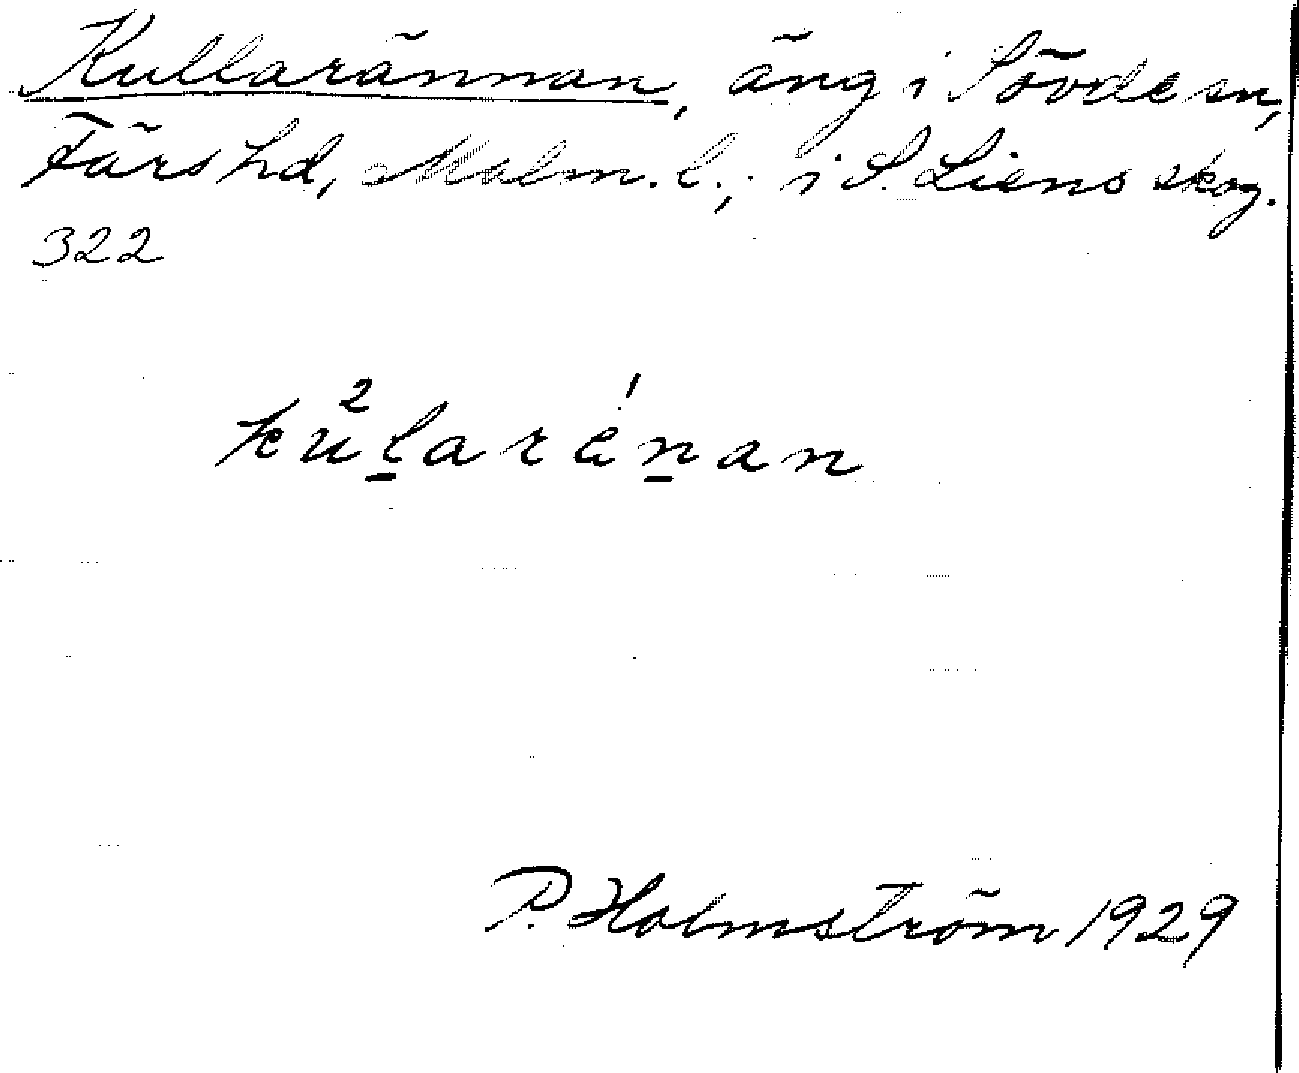 Kullarännan, äng i Sövde sn,
Färs hd, Malm. l.; i S. Liens skog.
322
ku²l̲arɛ́n̲an
P. Holmström 1929